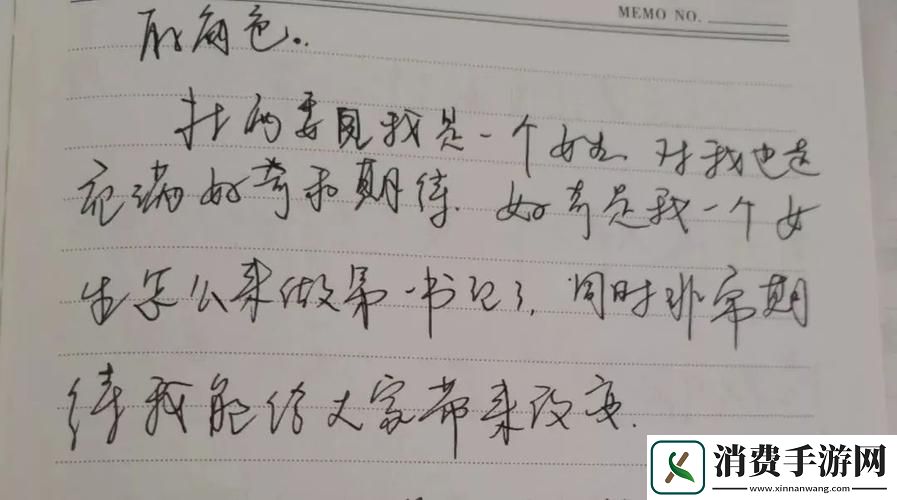 MEMO NO.
的角色..
村两委见我是一个女生、对我也是
充满好奇和期待.好奇是我一个女
生怎么来做第一书记了,同时非常期
待我能给大家带来改变.
消费手游网
www.xinnanwang.com